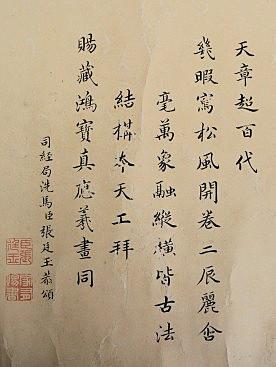 天章超百代
幾暇寫松風開卷二辰麗含
毫萬象融縱橫皆古法
結構參天工拜
賜藏鴻寶真應羲畫同
司經局洗馬臣張廷玉恭頌